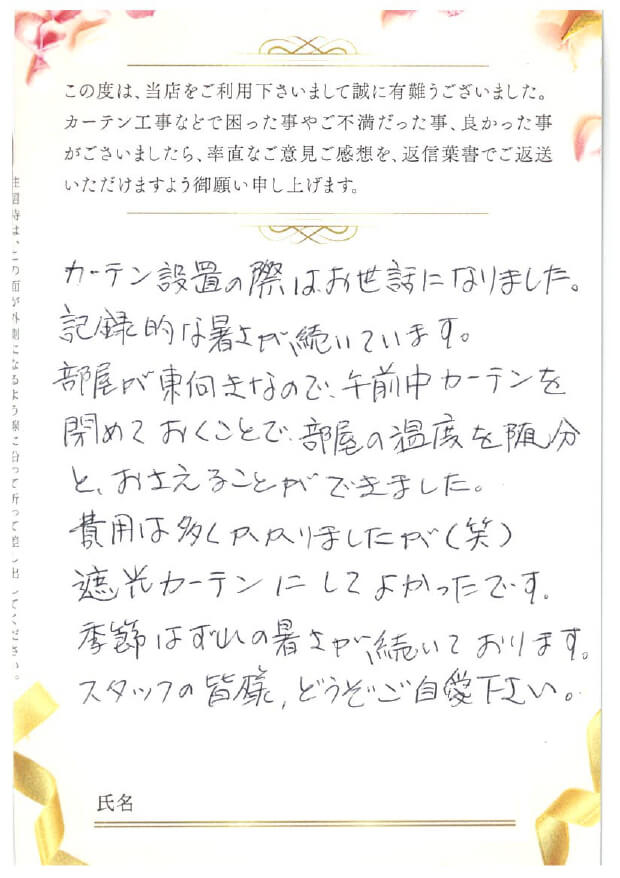 この度は、当店をご利用下さいまして誠に有難うございました。
カーテン工事などで困った事やご不満だった事、良かった事
がございましたら、率直なご意見ご感想を、返信葉書でご返送
いただけますよう御願い申し上げます。
カーテン設置の際はお世話になりました。
記録的な暑さが、続いています。
部屋が東向きなので、午前中カーテンを
閉めておくことで、部屋の温度を随分
と、おさえることができました。
費用は多くかかりましたが(笑)
遮光カーテンにしてよかったです。
季節はずれの暑さが、続いております。
スタッフの皆様,どうぞご自愛下さい。
氏名
は、この面が外側になるよう線に沿って折って差し出してください。